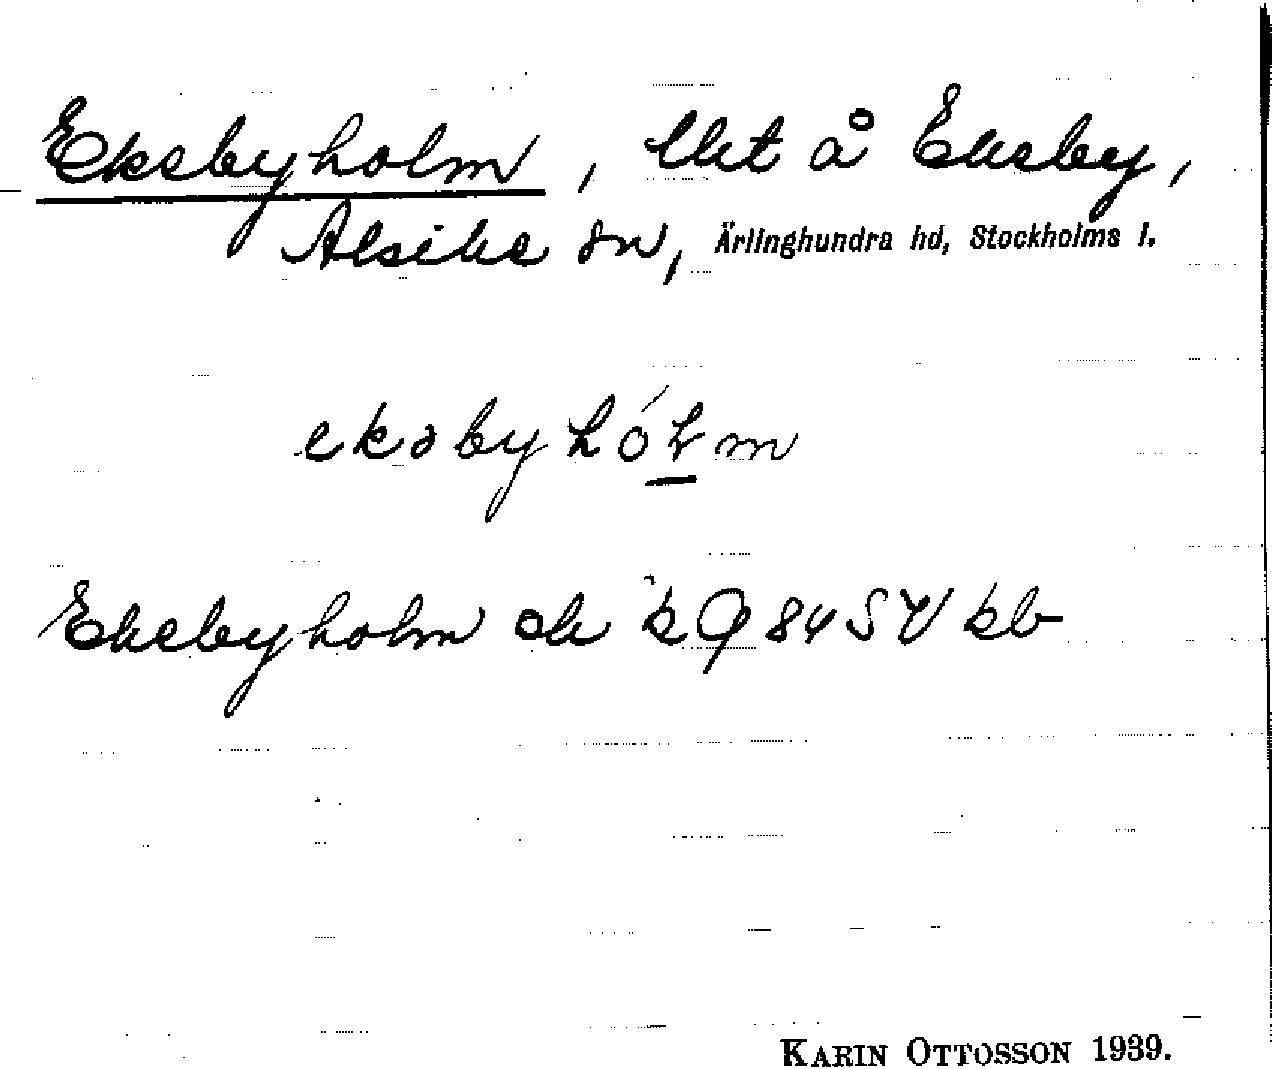 Eksbyholm, lht å Eksby,
Alsike sn, Ärlinghundra hd, Stockholms l.
eksbyhólm
Eksbyholm ek 84 SV kb
KARIN OTTOSSON 1939.